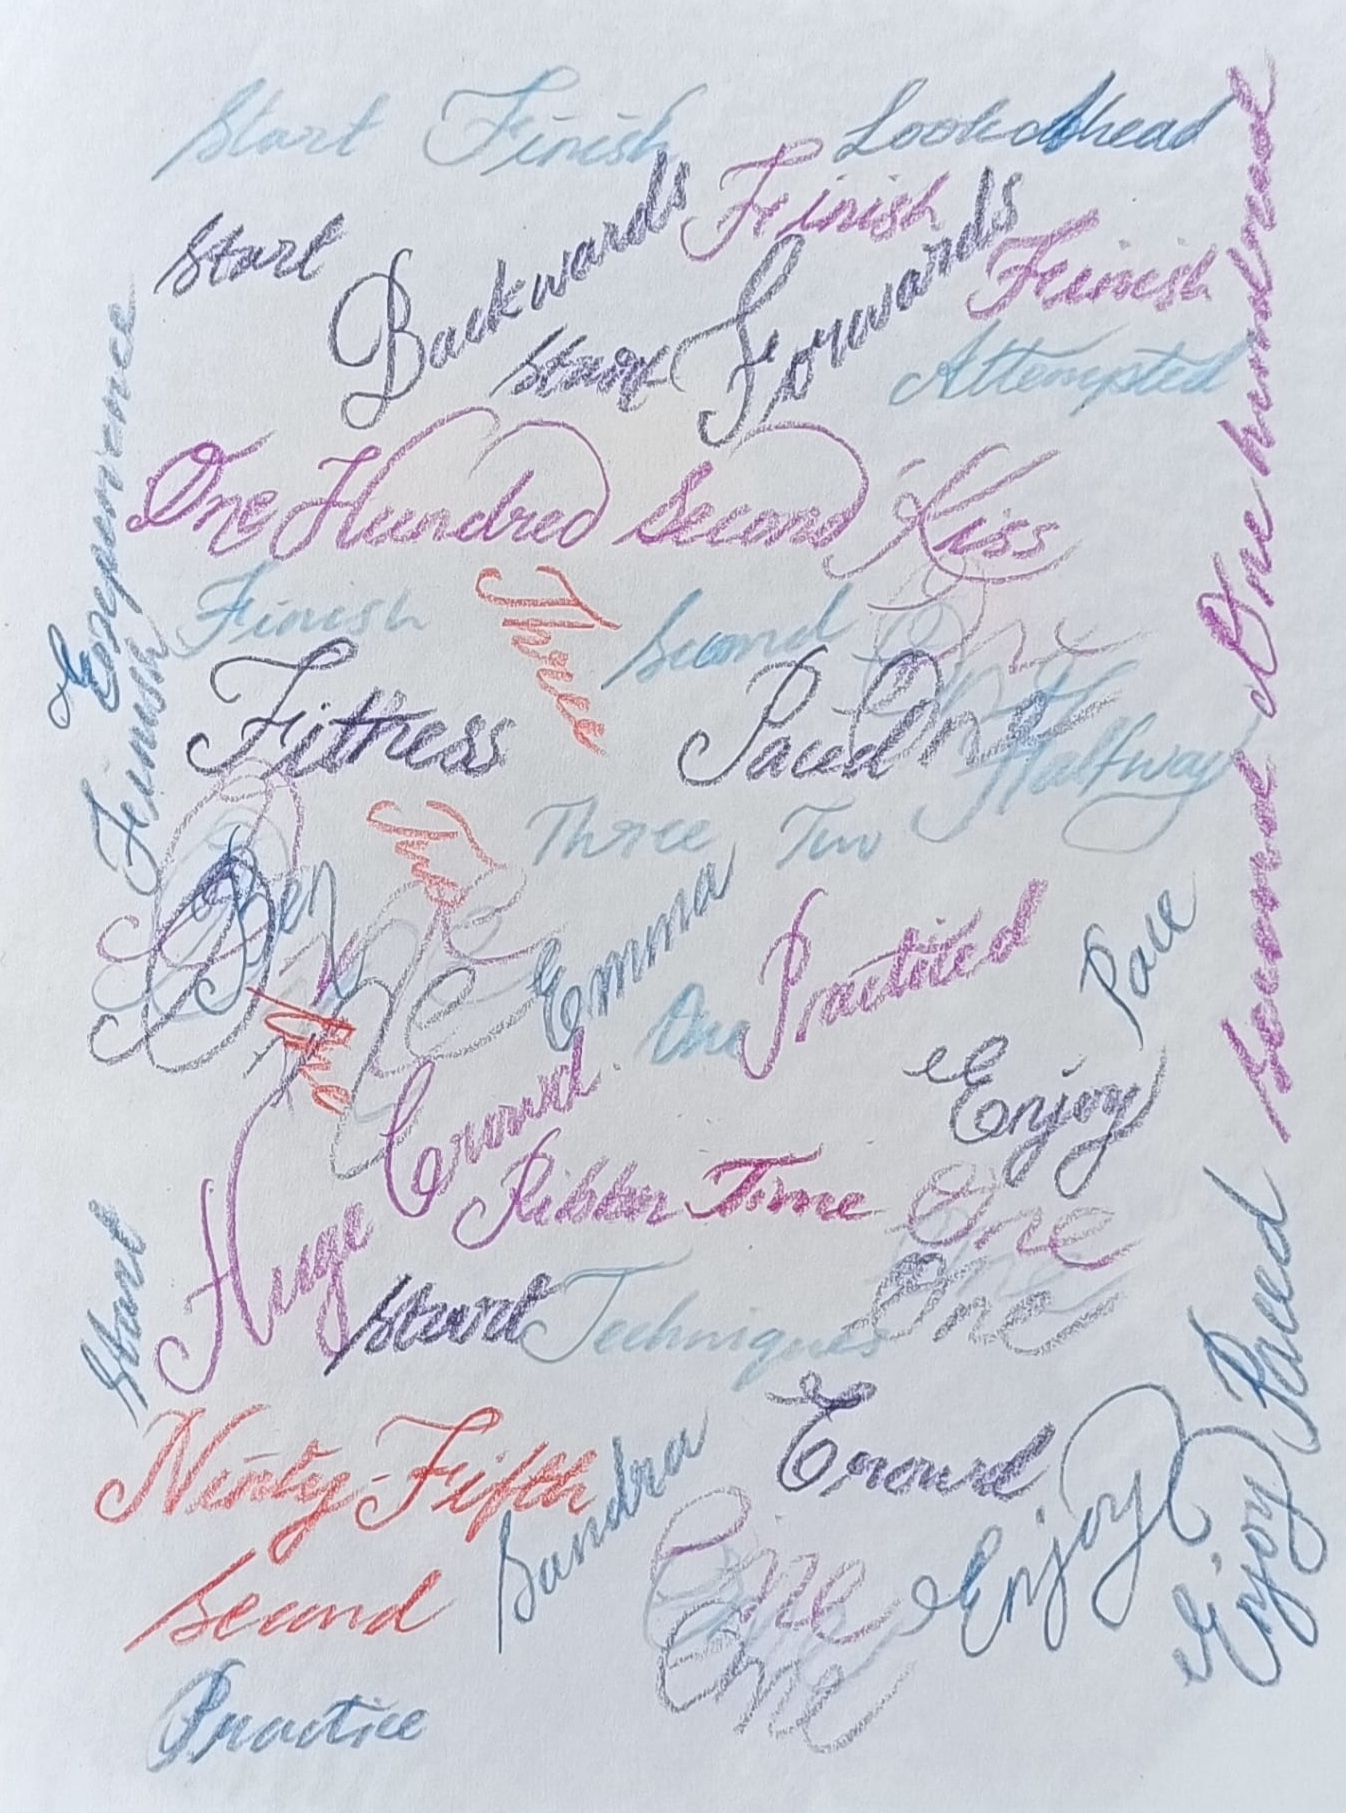 Start Finish Look Ahead
Start Backwards Finish
Forwards Finish
Start
Attempted
One Hundred Second Kiss
Experience
Finish
Time
Second
One
Fittness
Paced One
Halfway
Finish
Three Two
Ben
Emma
Practiced
Pace
One
Crowd
Enjoy
Huge
Ribbon Time
One
Start
Start Techniques
One
Ninty-Fifth
Second
Sandra
Crowd
One
One
Enjoy
Enjoy
Paced
Practice
One hundred
Second